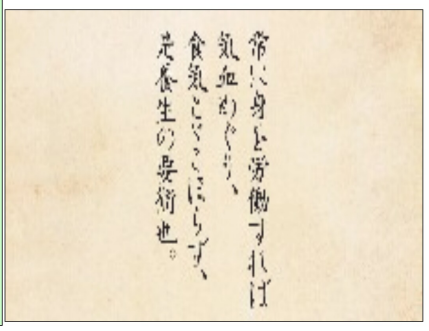 常に身を労働すれば
気血めぐり、
食気とゞこほらず、
是養生の要術也。